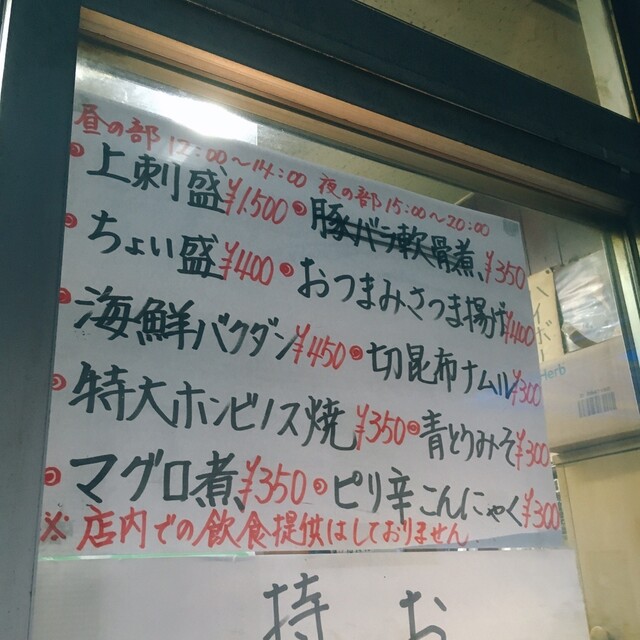 昼の部 12:00〜14:00 夜の部 15:00〜20:00
・上刺盛 ¥1.500
・ちょい盛 ¥400
・海鮮バクダン ¥450
・特大ホンビノス焼 ¥350
・マグロ煮 ¥350
・豚バラ軟骨煮 ¥350
・おつまみさつま揚げ ¥400
・切昆布ナムル ¥300
・青とうみそ ¥300
・ピリ辛こんにゃく ¥300
※店内での飲食提供はしておりません
持 お